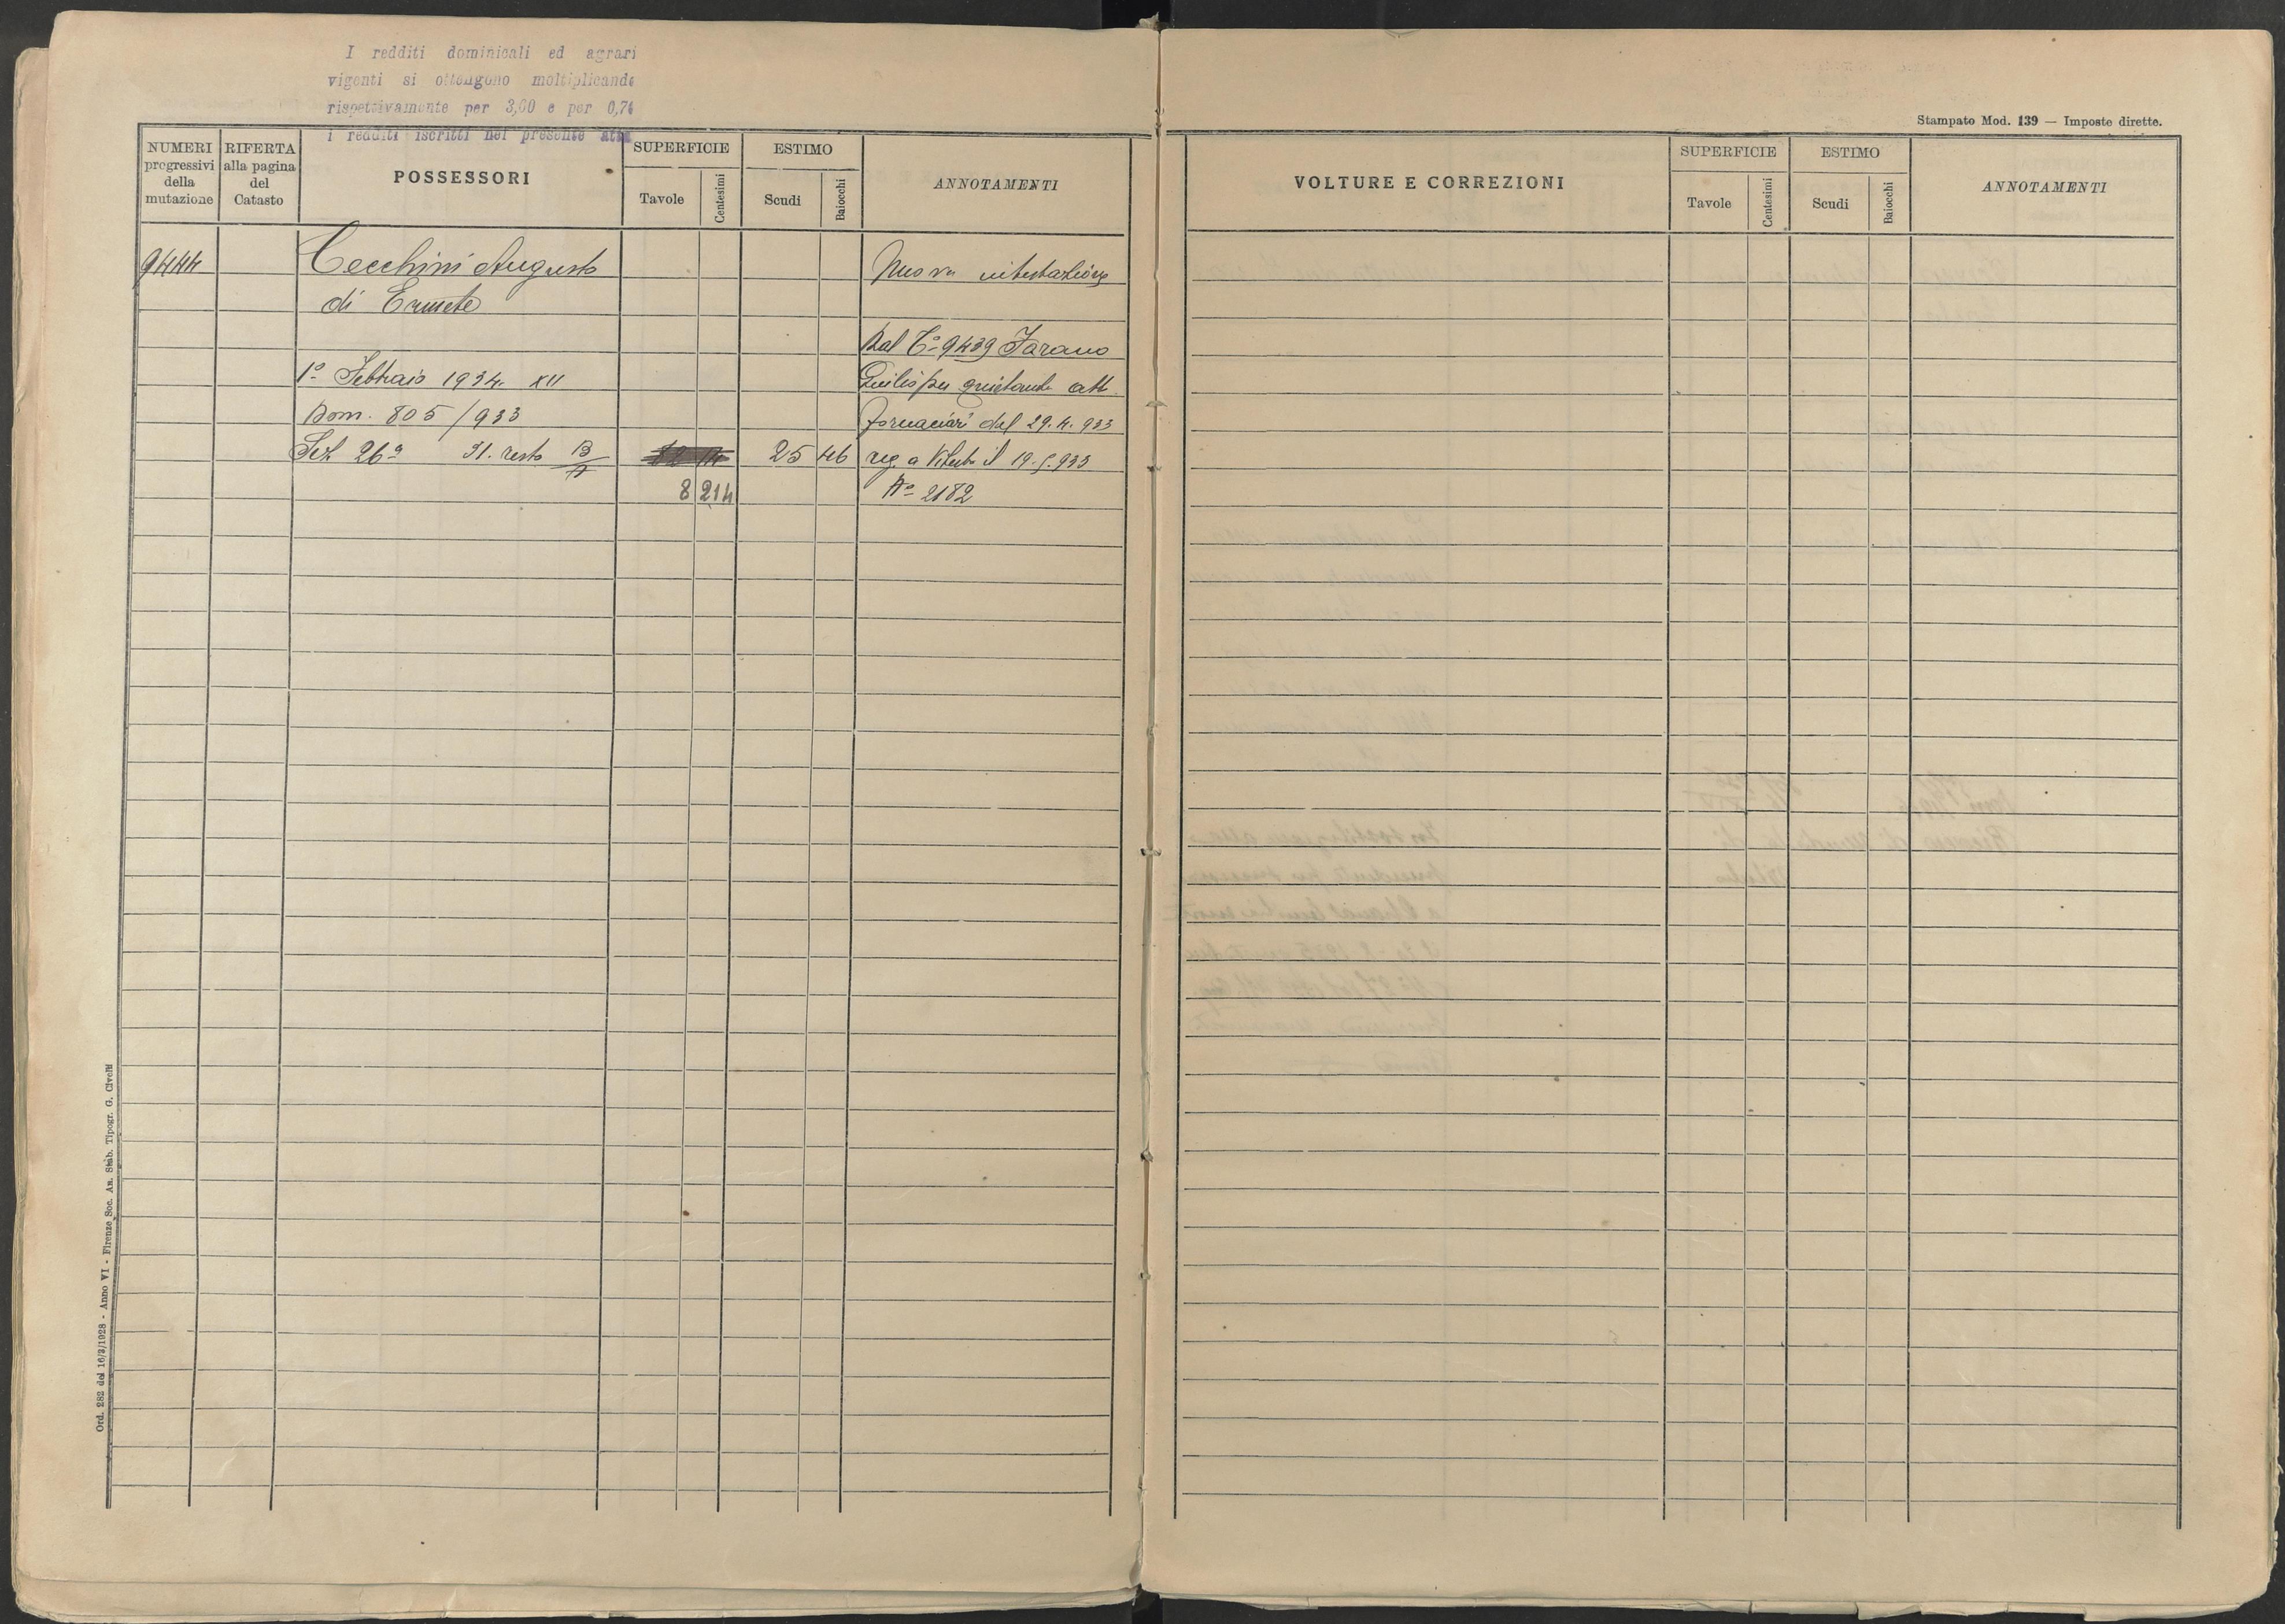 I redditi dominicali ed agrari
vigenti si ottengono moltiplicando
rispettivamente per 3,00 e per 0,74
i redditi iscritti nel presente atto
Stampato Mod. 139 — Imposte dirette.
NUMERI progressivi della mutazione
RIFERTA alla pagina del Catasto
POSSESSORI
SUPERFICIE
Tavole
Centesimi
ESTIMO
Scudi
Baiocchi
ANNOTAMENTI
VOLTURE E CORREZIONI
SUPERFICIE
Tavole
Centesimi
ESTIMO
Scudi
Baiocchi
ANNOTAMENTI
9444 Cecchini Augusto Nuova intestazione
di Ermete
Dal C° 9439 Farano
1° Febbraio 1934 XII
per quietanza att.
Dom. 805/933 Fornaciari del 29.4.933
Sez 26ª 31. resto 25 46 reg. a Viterbo il 19.5.933
8 214 N° 2182
Ord. 282 del 16/3/1928 - Anno VI - Firenze, Soc. An. Stab. Tipogr. G. Civelli